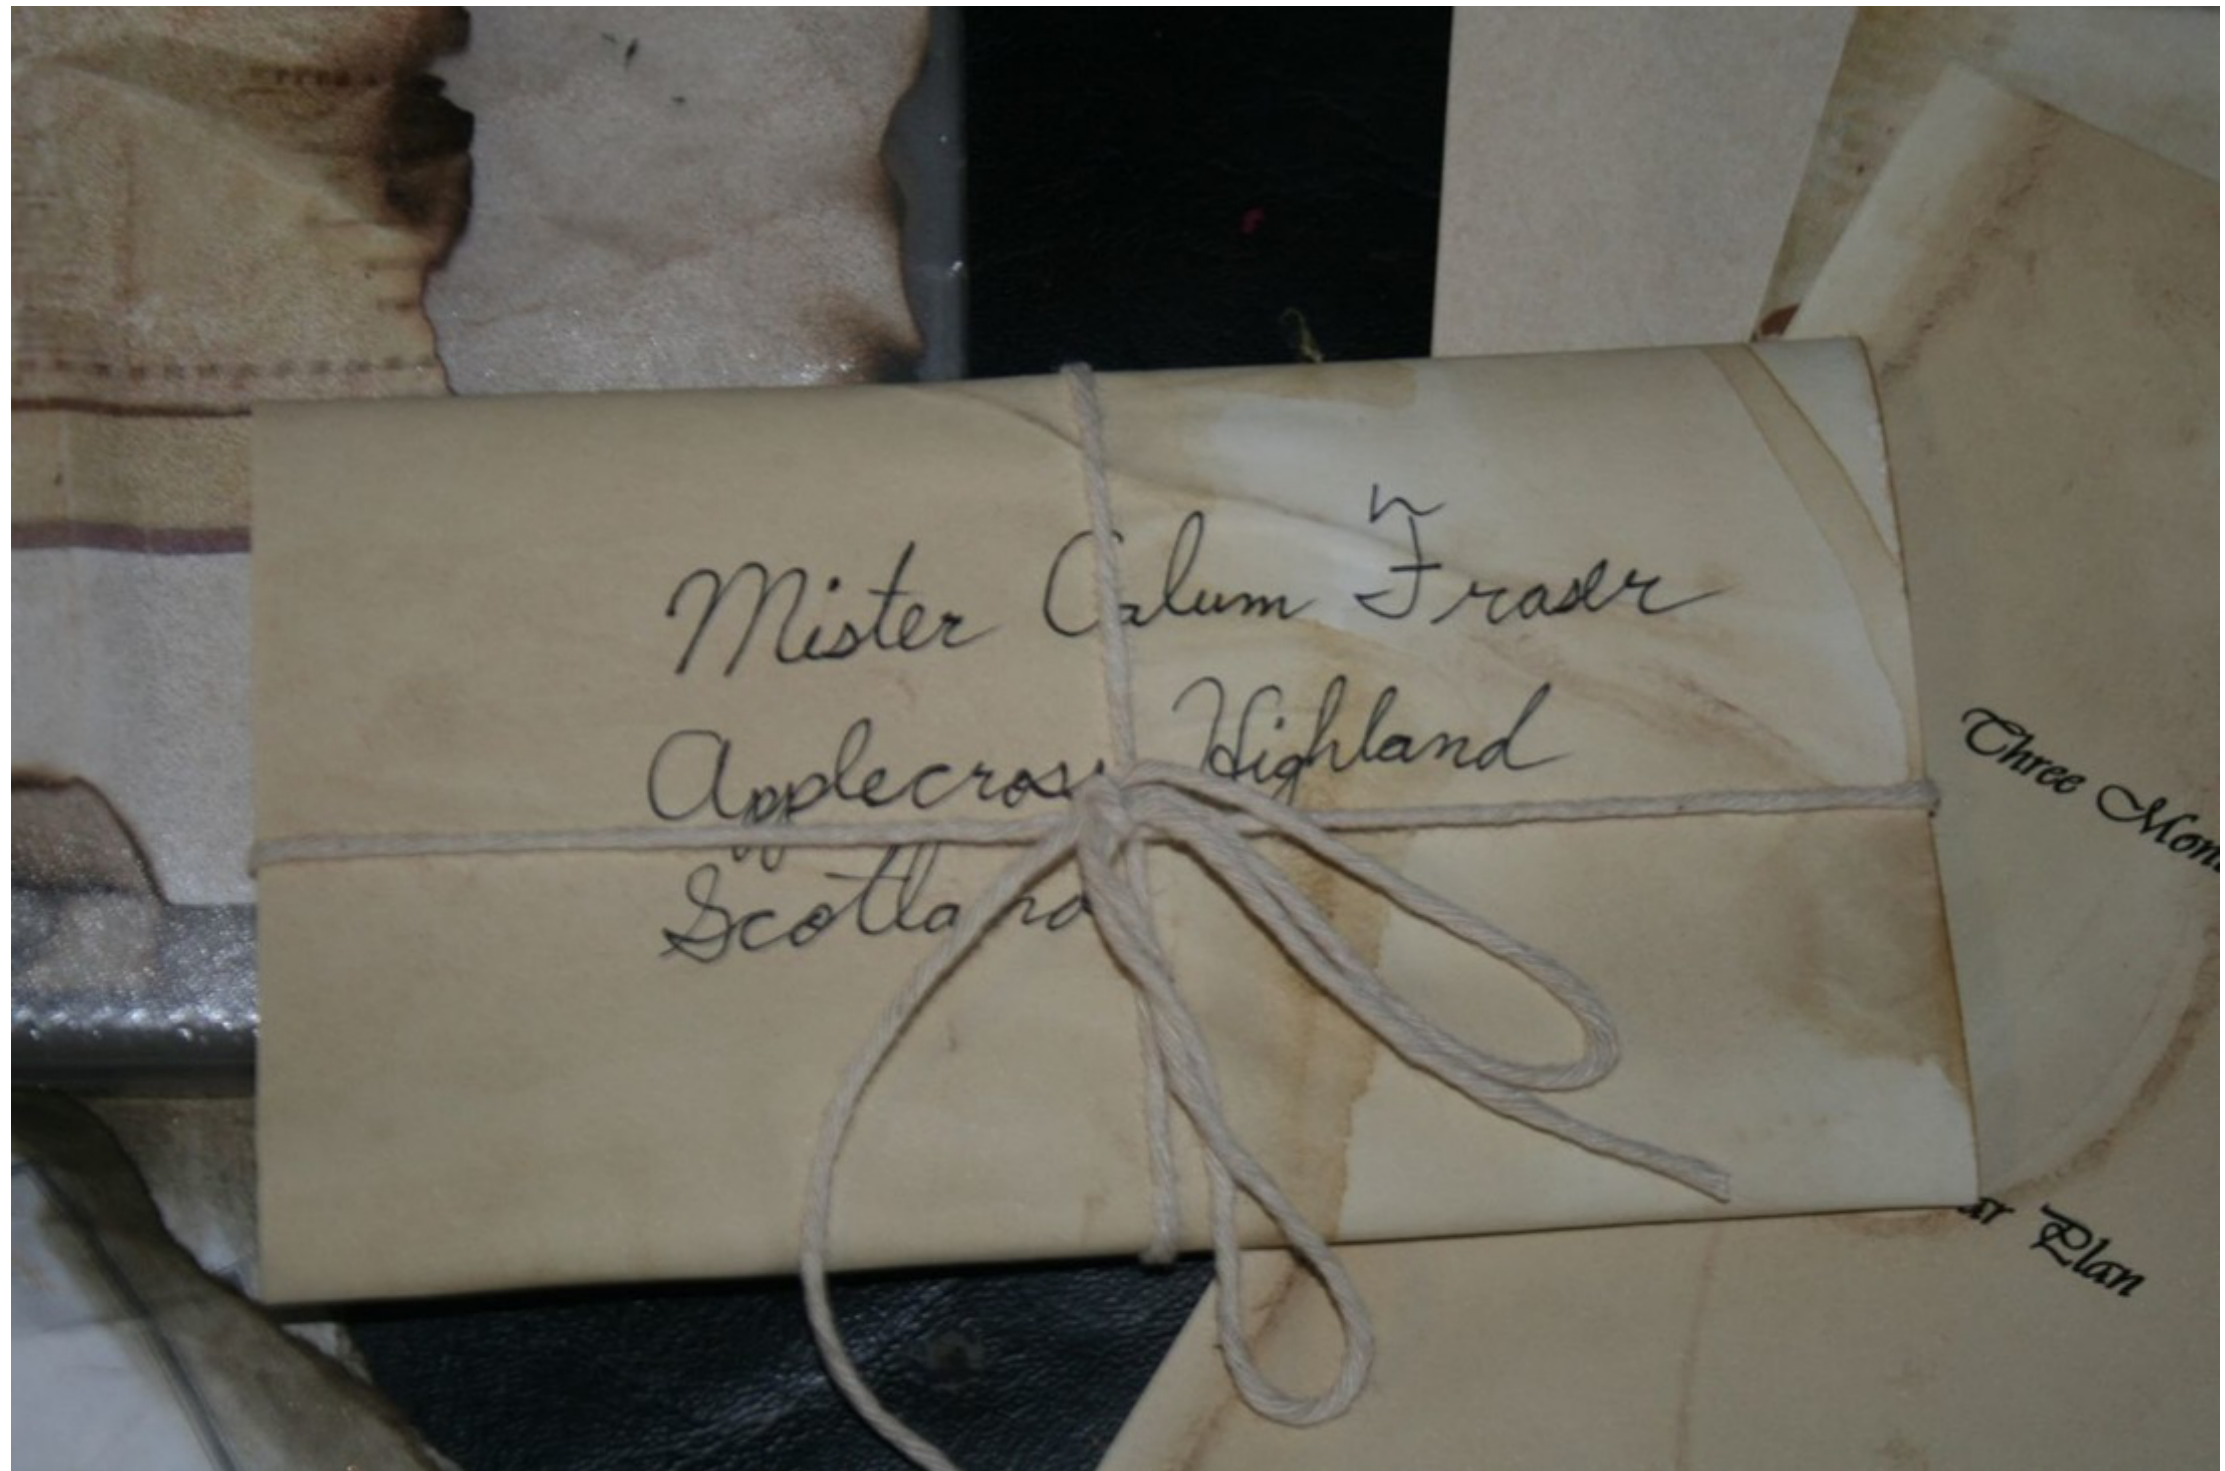 Mister Calum Fraser
Applecross Highland
Scotland
Three
Plan